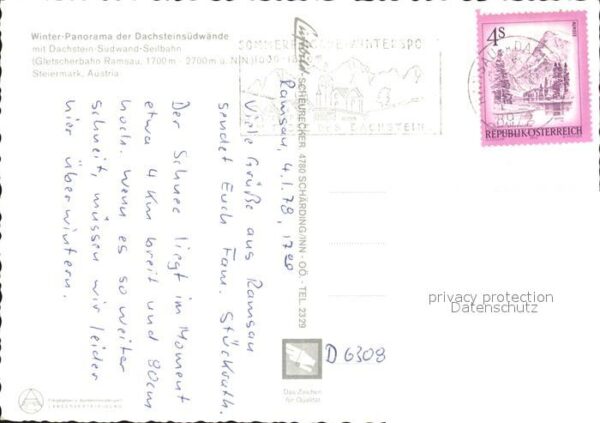 Winter-Panorama der Dachsteinsüdwände
mit Dachstein-Südwand-Seilbahn
(Gletscherbahn Ramsau, 1700 m - 2700 m ü. N.N)
Steiermark, Austria
SCHEURECKER, 4780 SCHÄRDING/INN - OÖ. - TEL. 2329
Ramsau, 4.1.78, 1700
Viele Grüße aus Ramsau
sendet Euch Fam. Stückrath.
Der Schnee liegt im Moment
etwa 4 Km breit und 80cm
hoch. Wenn es so weiter
schneit, müssen wir leider
hier überwintern.
4S
REPUBLIK ÖSTERREICH
8972
DACHSTEIN
privacy protection
Datenschutz
D 6308
Das Zeichen
für Qualität